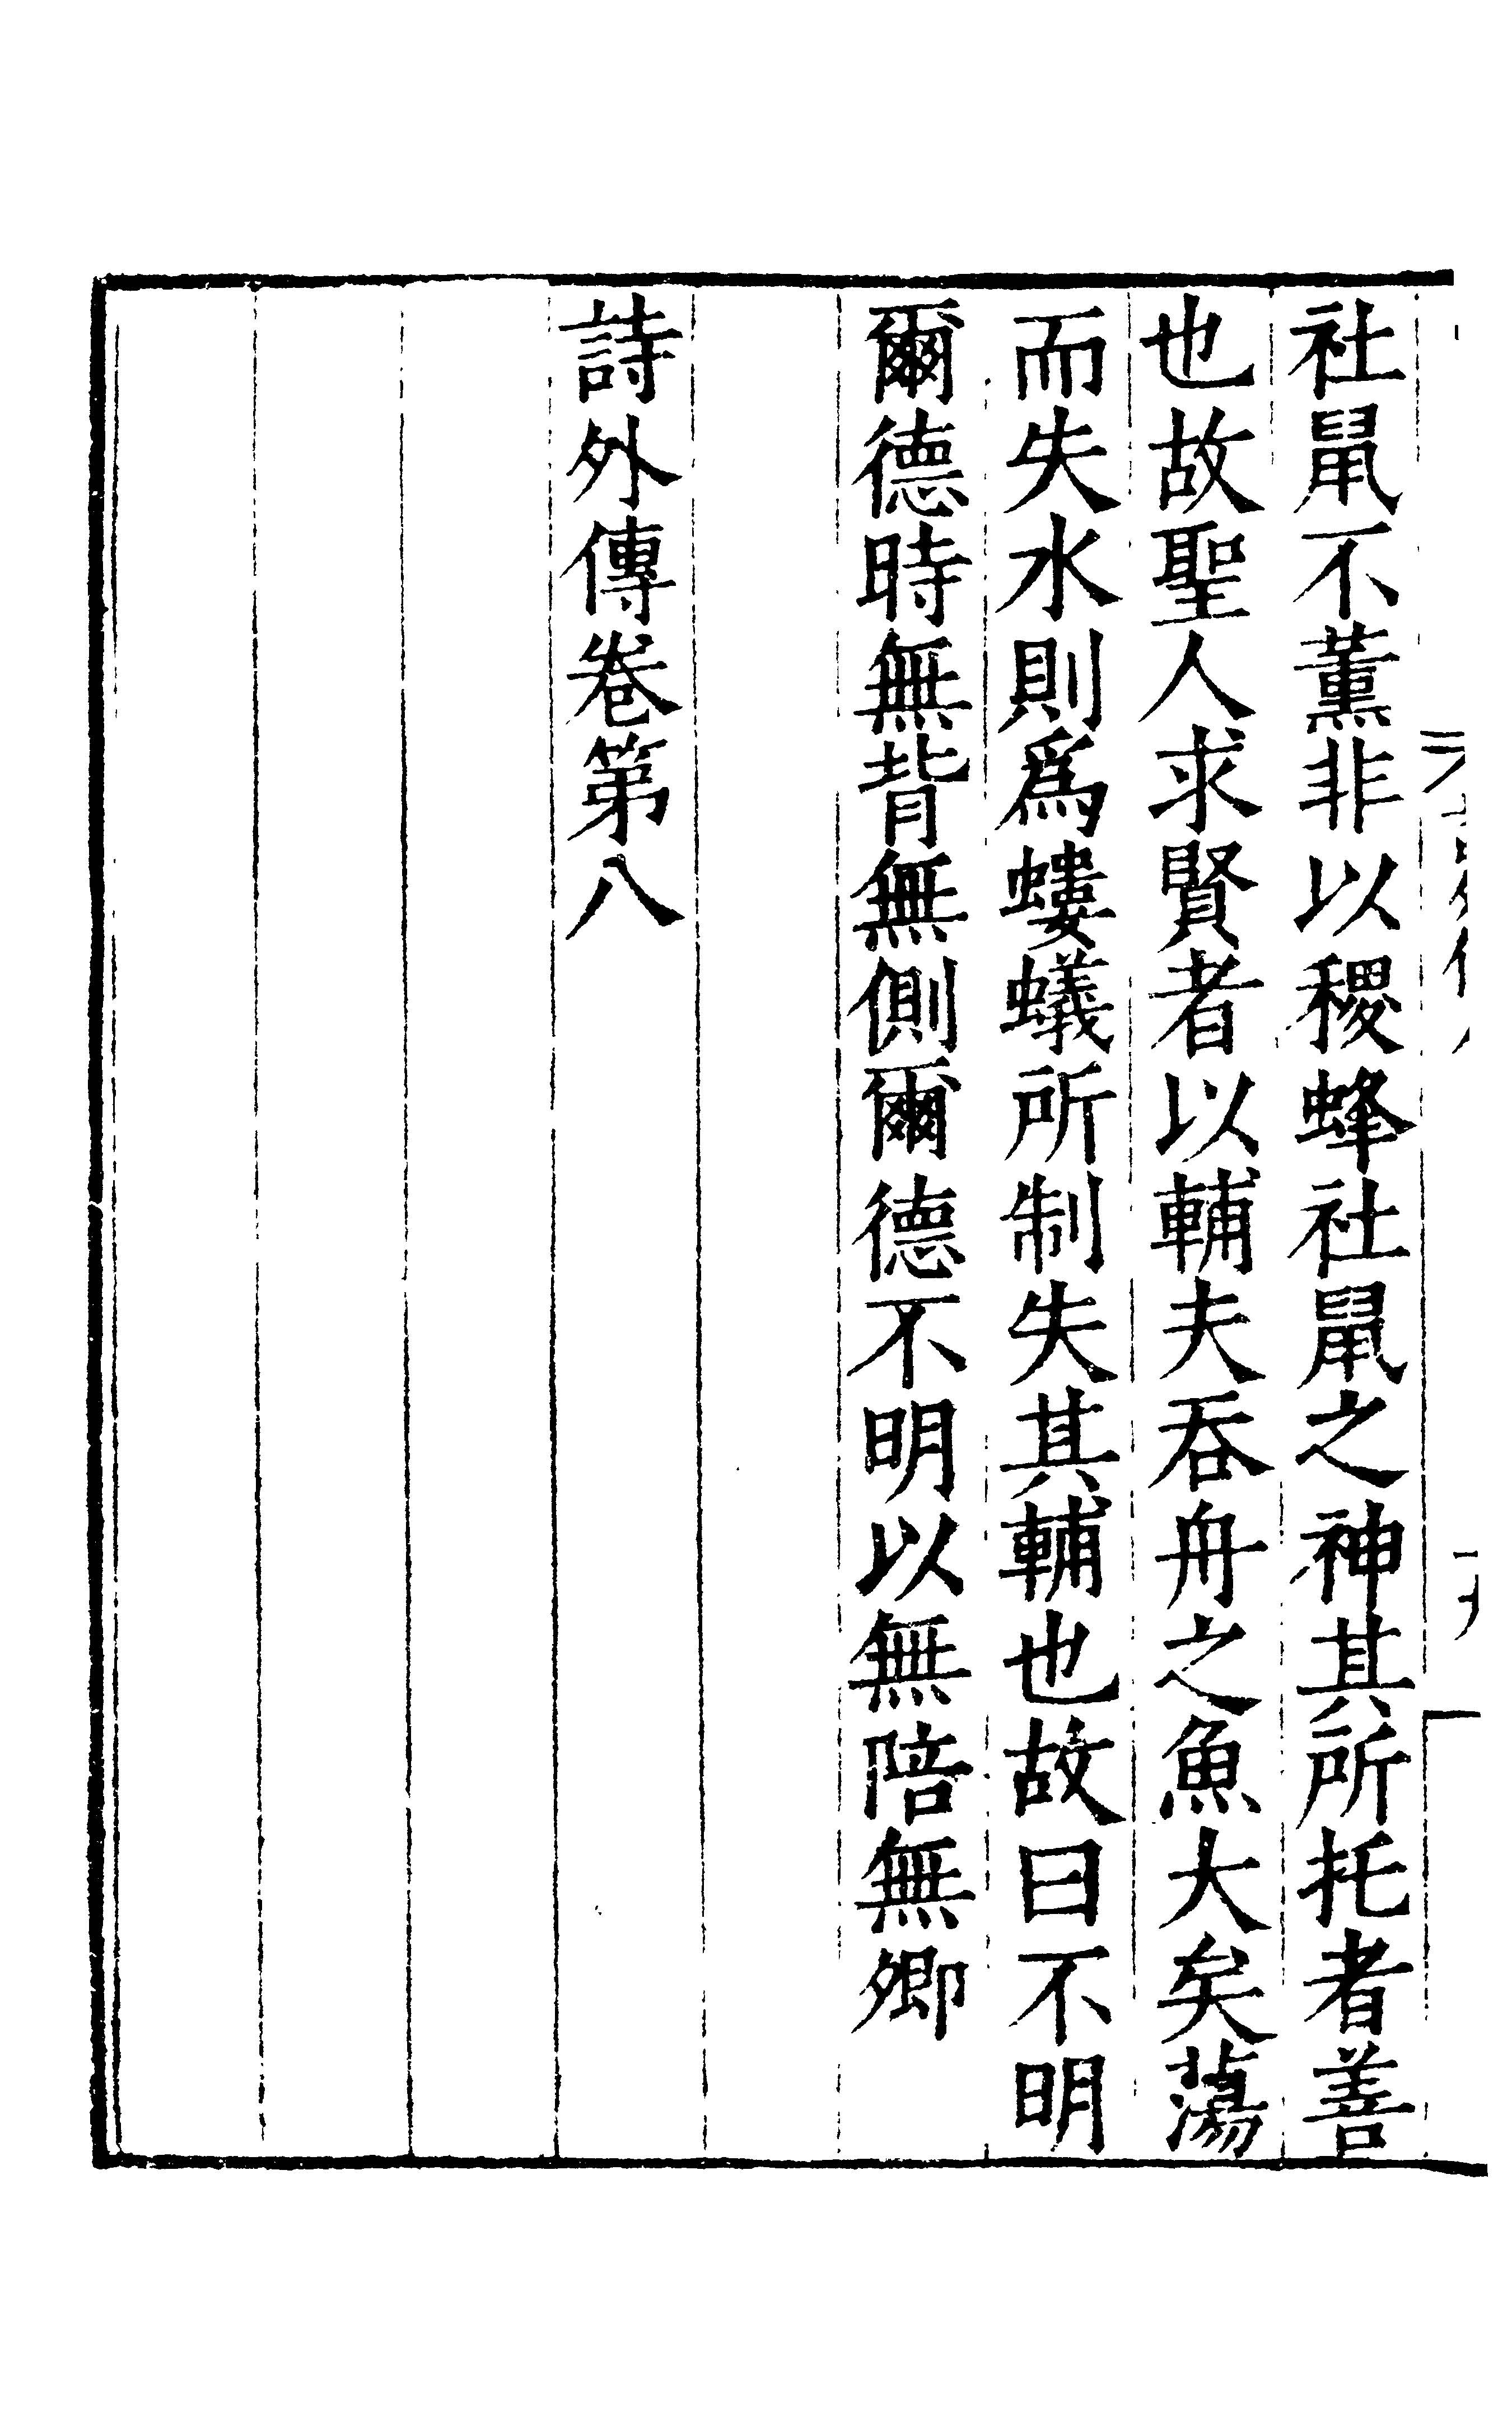 社鼠不薰非以稷蜂社鼠之神其所托者善
也故聖人求賢者以輔夫吞舟之魚大矣蕩
而失水則爲螻蟻所制失其輔也故曰不明
爾德時無背無側爾德不明以無陪無卿
詩外傳卷第八